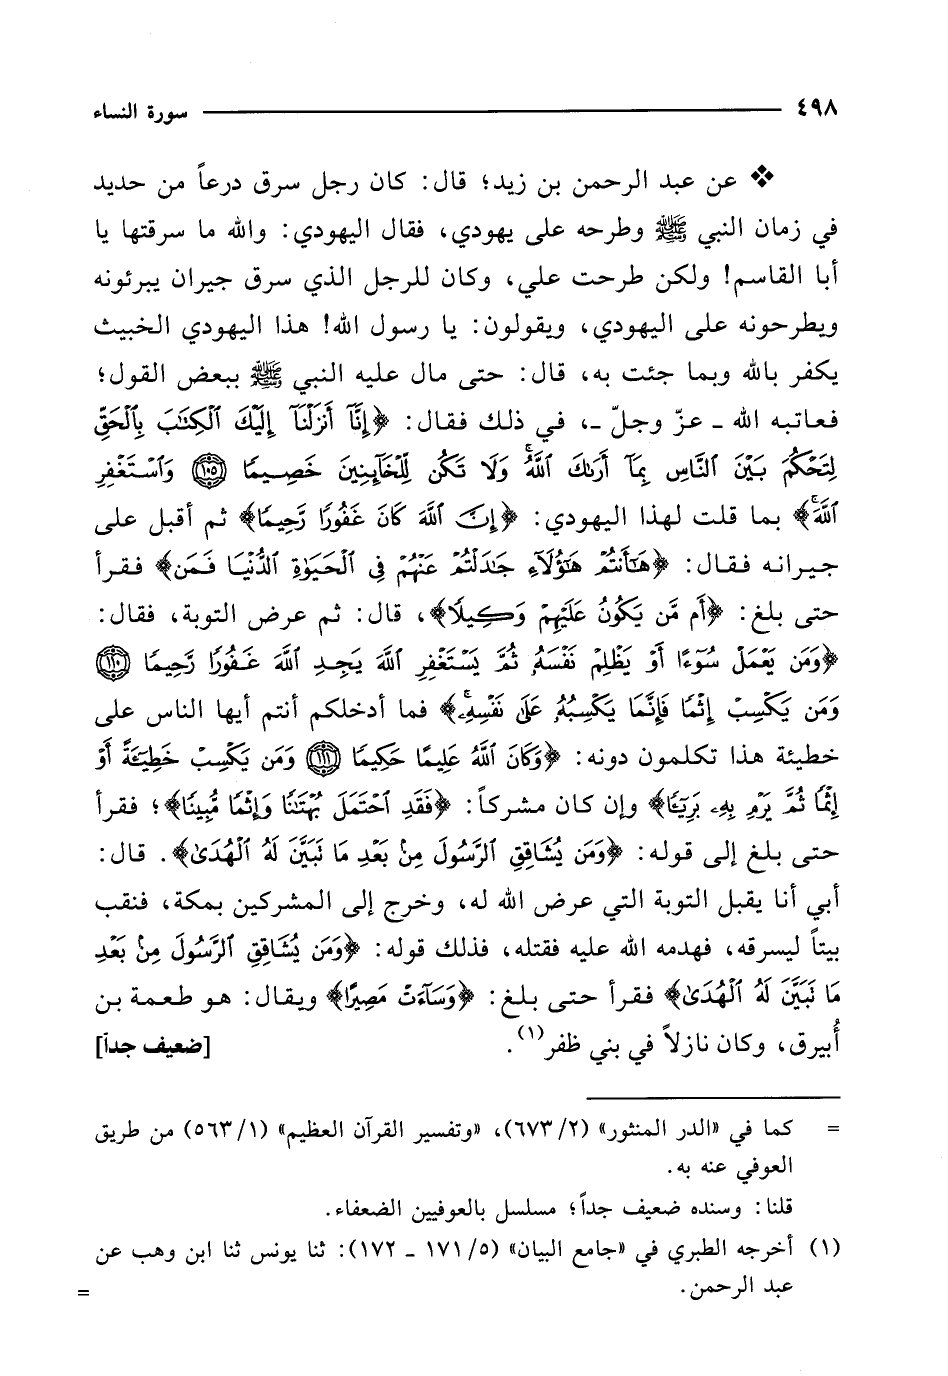 ٤٩٨ سورة النساء
❖ عن عبد الرحمن بن زيد؛ قال: كان رجل سرق درعاً من حديد
في زمان النبي ﷺ وطرحه على يهودي، فقال اليهودي: والله ما سرقتها يا
أبا القاسم! ولكن طرحت علي، وكان للرجل الذي سرق جيران يبرئونه
ويطرحونه على اليهودي، ويقولون: يا رسول الله! هذا اليهودي الخبيث
يكفر بالله وبما جئت به، قال: حتى مال عليه النبي ﷺ ببعض القول؛
فعاتبه الله ـ عزّ وجلّ ـ، في ذلك فقال: ﴿إِنَّآ أَنزَلْنَآ إِلَيْكَ ٱلْكِتَٰبَ بِٱلْحَقِّ
لِتَحْكُمَ بَيْنَ ٱلنَّاسِ بِمَآ أَرَىٰكَ ٱللَّهُ ۚ وَلَا تَكُن لِّلْخَآئِنِينَ خَصِيمًا ١٠٥ وَٱسْتَغْفِرِ
ٱللَّهَ ۚ﴾ بما قلت لهذا اليهودي: ﴿إِنَّ ٱللَّهَ كَانَ غَفُورًا رَّحِيمًا﴾ ثم أقبل على
جيرانه فقال: ﴿هَٰٓأَنتُمْ هَٰٓؤُلَآءِ جَٰدَلْتُمْ عَنْهُمْ فِى ٱلْحَيَوٰةِ ٱلدُّنْيَا فَمَن﴾ فقرأ
حتى بلغ: ﴿أَم مَّن يَكُونُ عَلَيْهِمْ وَكِيلًا﴾، قال: ثم عرض التوبة، فقال:
﴿وَمَن يَعْمَلْ سُوٓءًا أَوْ يَظْلِمْ نَفْسَهُۥ ثُمَّ يَسْتَغْفِرِ ٱللَّهَ يَجِدِ ٱللَّهَ غَفُورًا رَّحِيمًا ١١٠
وَمَن يَكْسِبْ إِثْمًا فَإِنَّمَا يَكْسِبُهُۥ عَلَىٰ نَفْسِهِۦ ۚ﴾ فما أدخلكم أنتم أيها الناس على
خطيئة هذا تكلمون دونه: ﴿وَكَانَ ٱللَّهُ عَلِيمًا حَكِيمًا ١١١ وَمَن يَكْسِبْ خَطِيٓـَٔةً أَوْ
إِثْمًا ثُمَّ يَرْمِ بِهِۦ بَرِيٓـًٔا﴾ وإن كان مشركاً: ﴿فَقَدِ ٱحْتَمَلَ بُهْتَٰنًا وَإِثْمًا مُّبِينًا﴾؛ فقرأ
حتى بلغ إلى قوله: ﴿وَمَن يُشَاقِقِ ٱلرَّسُولَ مِنۢ بَعْدِ مَا تَبَيَّنَ لَهُ ٱلْهُدَىٰ﴾. قال:
أبي أنا يقبل التوبة التي عرض الله له، وخرج إلى المشركين بمكة، فنقب
بيتاً ليسرقه، فهدمه الله عليه فقتله، فذلك قوله: ﴿وَمَن يُشَاقِقِ ٱلرَّسُولَ مِنۢ بَعْدِ
مَا تَبَيَّنَ لَهُ ٱلْهُدَىٰ﴾ فقرأ حتى بلغ: ﴿وَسَآءَتْ مَصِيرًا﴾ ويقال: هو طعمة بن
أُبيرق، وكان نازلاً في بني ظفر(١). [ضعيف جداً]
= كما في «الدر المنثور» (٢/ ٦٧٣)، «وتفسير القرآن العظيم» (١/ ٥٦٣) من طريق
العوفي عنه به.
قلنا: وسنده ضعيف جداً؛ مسلسل بالعوفيين الضعفاء.
(١) أخرجه الطبري في «جامع البيان» (٥/ ١٧١ ـ ١٧٢): ثنا يونس ثنا ابن وهب عن
عبد الرحمن. =